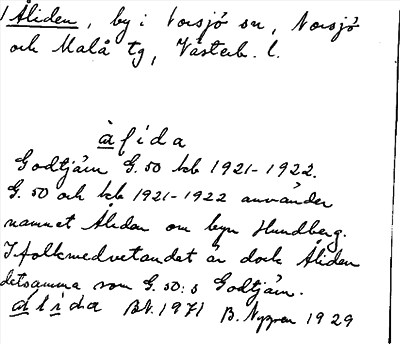 Åliden, by i Norsjö sn, Norsjö
och Malå tg, Västerb. l.
àlida
Godtjärn G. 50 kb 1921-1922.
G. 50 och kb 1921-1922 använder
namnet Åliden om byn Hundberg.
I folkmedvetandet är dock Åliden
detsamma som G. 50:s Godtjärn.
alida BN. 1971 B. Nygren 1929